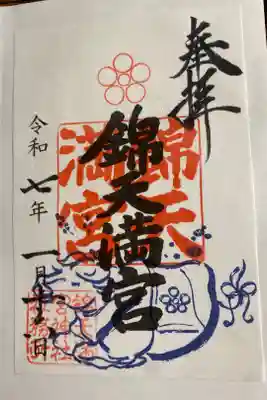 奉拝
錦天満宮
錦天
満宮
令和七年一月十一日